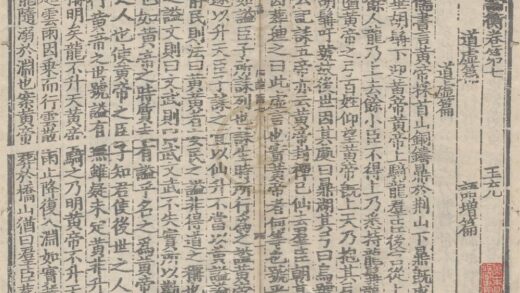 衡卷第七 王充
道虛篇 語增篇
道虛篇
儒書言黃帝採首山銅鑄鼎於荊山下鼎既
垂胡髯下迎黃帝黃帝上騎龍羣臣後宮從上
餘人龍乃上去餘小臣不得上乃悉持龍髯
黃帝之弓百姓仰望黃帝既上天乃抱其弓
胡髯吁號故後世因其處曰鼎湖其弓曰烏號
公記誄五帝亦云黃帝封禪已仙去羣臣朝其
因葬埋之曰此虛言也實黃帝者何等也號乎
如謚臣子所誄列也誄生時所行為之謚
遂以升天臣子誄之宜以仙升不當以黃謚
靜民則法曰黃黃者安民之謚非得道之稱也
謚文則曰文武則曰武文武不失實所以勸
也如黃帝之時質未有謚乎名之為黃帝
之人也使黃帝之臣子知君使後世之人
行黃帝之世號謚有無雖疑未定黃非升
明矣龍不升天黃帝騎之乃明黃帝不升天
起雲雨因乘而行雲散雨止降復入淵如實
龍隨溺於淵也案黃帝葬於橋山猶曰羣臣